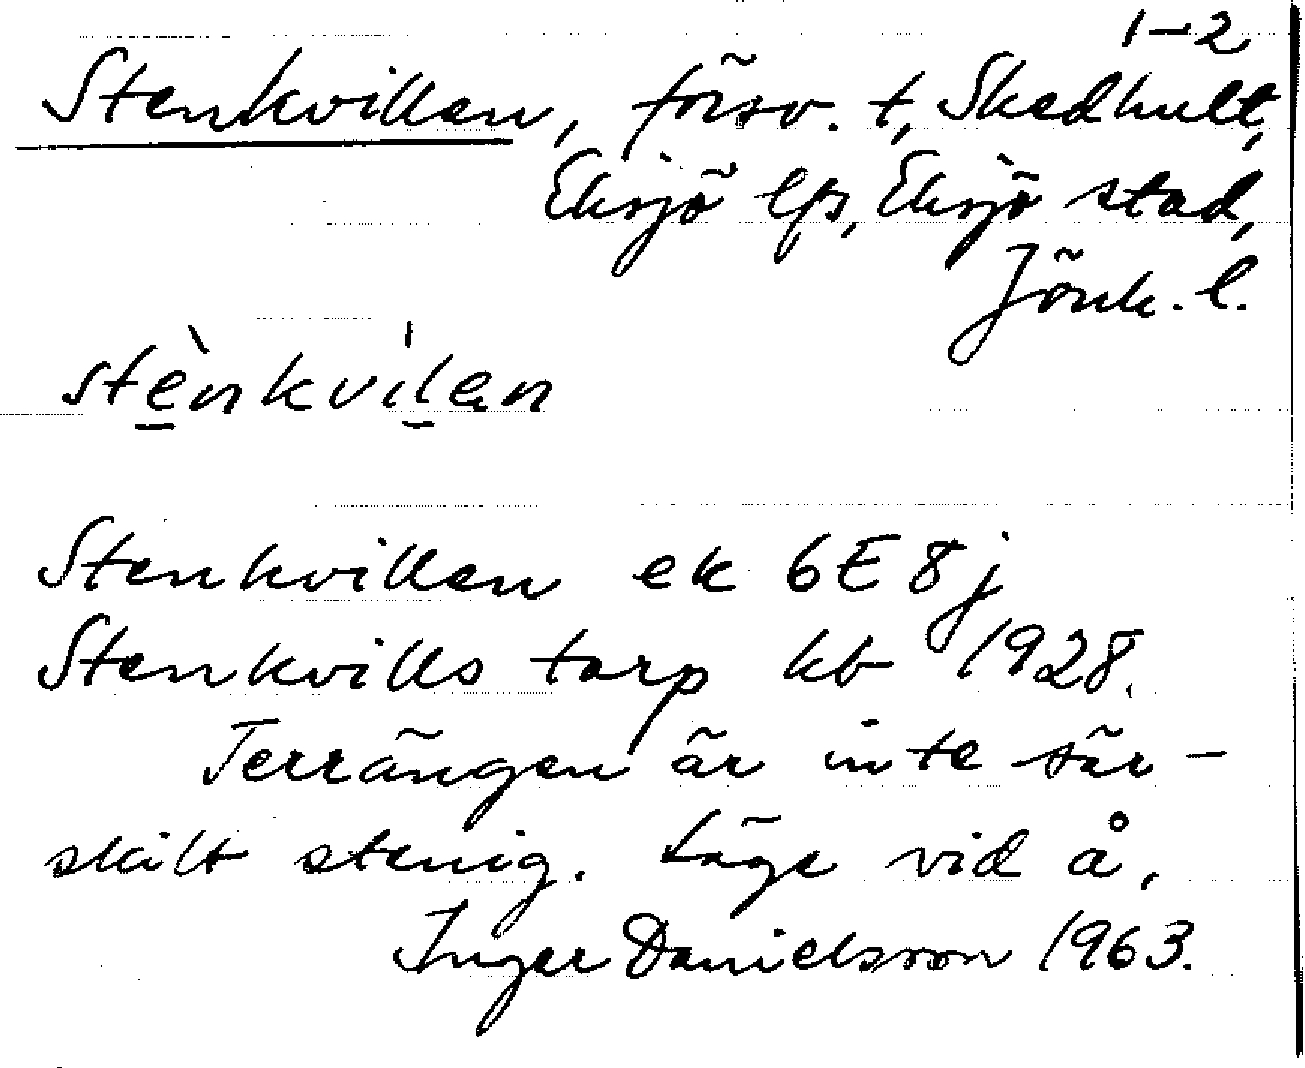 1–2
Stenkvillen, försv. t, Skedhult,
Eksjö lfs, Eksjö stad,
Jönk. l.
stènkvílen
Stenkvillen ek 6E8j
Stenkvills torp kb 1928.
Terrängen är inte sär-
skilt stenig. Läge vid å,
Inger Danielsson 1963.